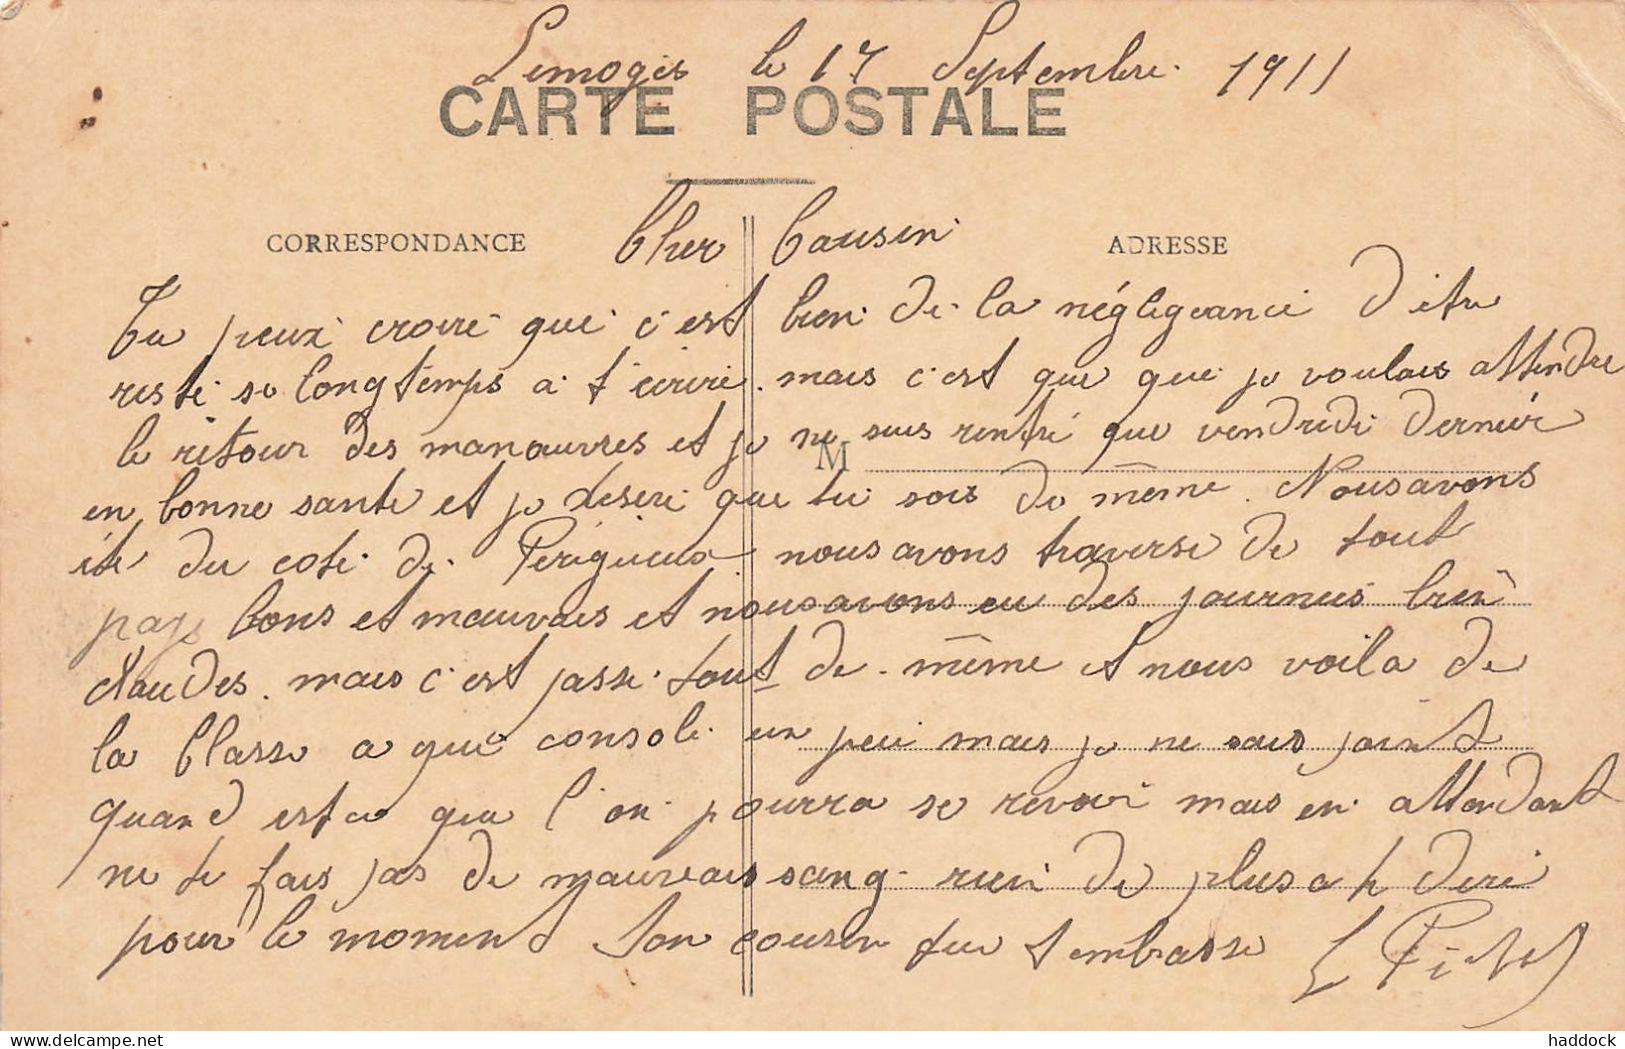 Limoges le 17 Septembre 1911
CARTE POSTALE
CORRESPONDANCE
ADRESSE
Cher Cousin
Tu peux croire que c'est bien de la négligeance d'etre
resté si longtemps a t'écrire. mais c'est que que je voulais attendre
le retour des manœuvres et je ne suis rentré que vendredi dernier
M
en bonne santé et je desire que tu sois de même. Nousavons
été du coté de Périgueux nousavons traversé de tout
pays bons et mauvais et nousavons eu des journees bien
chaudes. mais c'est passé tout de même et nous voila de
la Classe a qui consolé un peu mais je ne sais point
quand est ce que l'on pourra se revoir mais en attendant
ne te fais pas de mauvais sang rien de plus a te dire
pour le moment Ton cousin qui t embrasse
haddock
delcampe.net